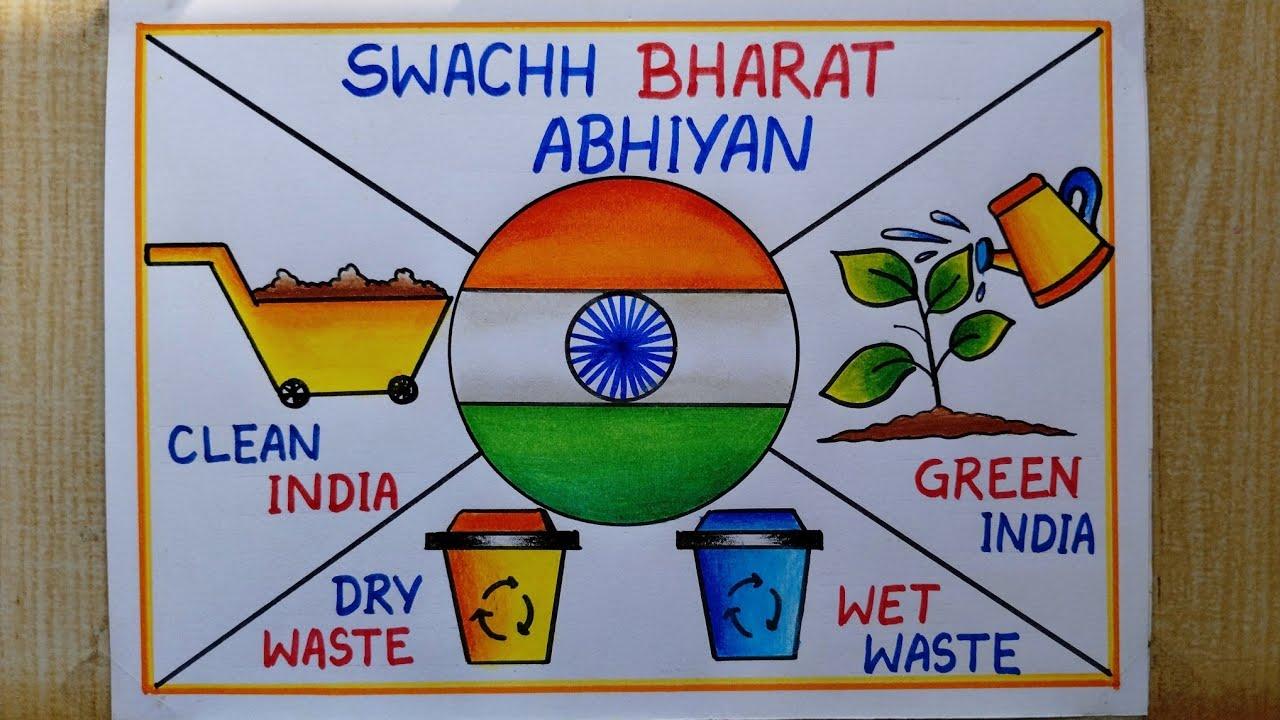 SWACHH BHARAT
ABHIYAN
CLEAN
INDIA
GREEN
INDIA
DRY
WASTE
WET
WASTE